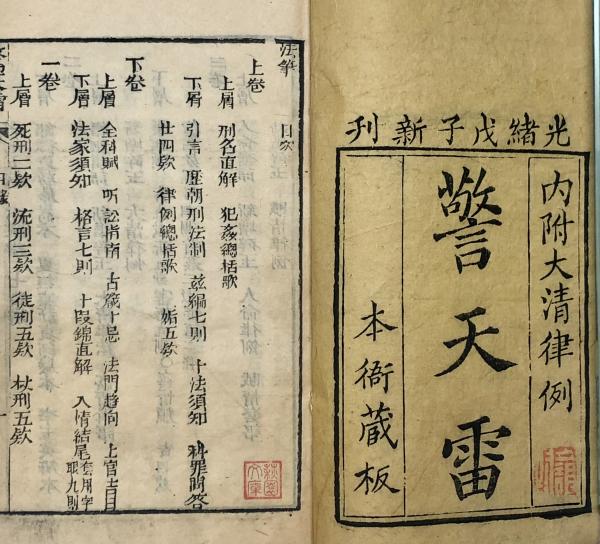 光緒戊子新刊
內附大清律例
警天雷
本衙藏板
法筆
目次
上卷
上層 刑名直解 犯姦總括歌
下層 引言 歷朝刑法制 玆編七則 十法須知 科罪問答
廿四欸 律例總括歌 姤五欸
下卷
上層 全科賦 听訟指南 古箴十忌 法門趋向 上官吉日
下層 法家須知 格言七則 十段錦直解 入情結尾 套用字
眼九則
一卷
上層 死刑二欸 流刑三欸 徒刑五欸 杖刑五欸